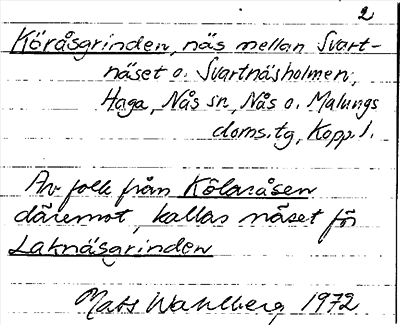 2
Köråsgrinden, näs mellan Svart-
näset o. Svartnäsholmen,
Haga, Nås sn, Nås o. Malungs
doms.tg, Kopp l.
Av folk från Kölaråsen
däremot, kallas näset för
Laknäsgrinden
Mats Wahlberg 1972